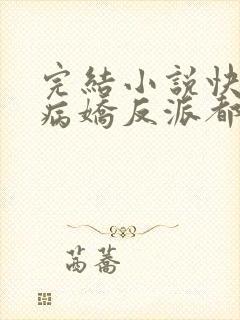 完結小說快
病嬌反派都
萵蕎